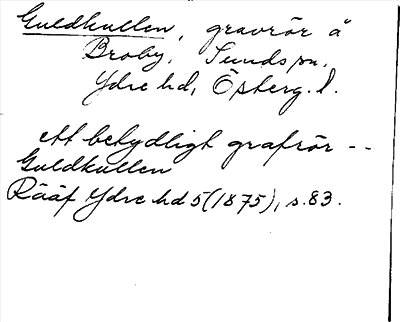 Guldkullen, gravrör å
Broby, Sunds sn,
Ydre hd, Österg. l.
ett betydligt grafrör --
Guldkullen
Rääf Ydre hd 5 (1875), s. 83.